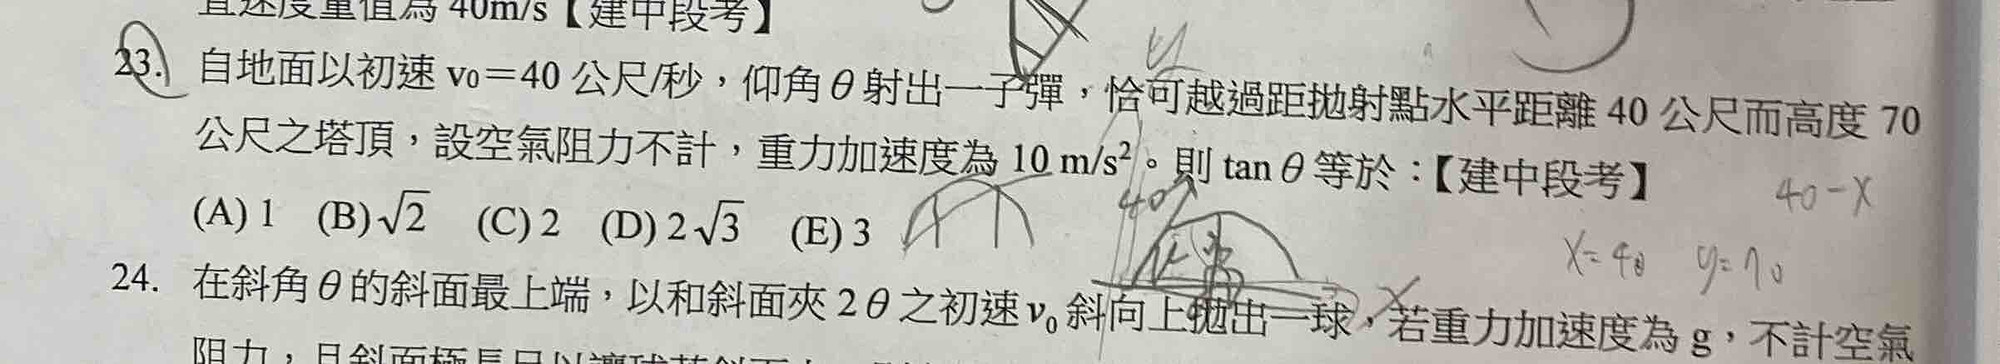 直速度量值為 40m/s【建中段考】
23. 自地面以初速 v₀＝40 公尺/秒，仰角 θ 射出一子彈，恰可越過距拋射點水平距離 40 公尺而高度 70
公尺之塔頂，設空氣阻力不計，重力加速度為 10 m/s²。則 tan θ 等於：【建中段考】
40-x
(A) 1 (B) √2 (C) 2 (D) 2√3 (E) 3
x=40 y=70
24. 在斜角 θ 的斜面最上端，以和斜面夾 2θ 之初速 v₀ 斜向上拋出一球，若重力加速度為 g，不計空氣